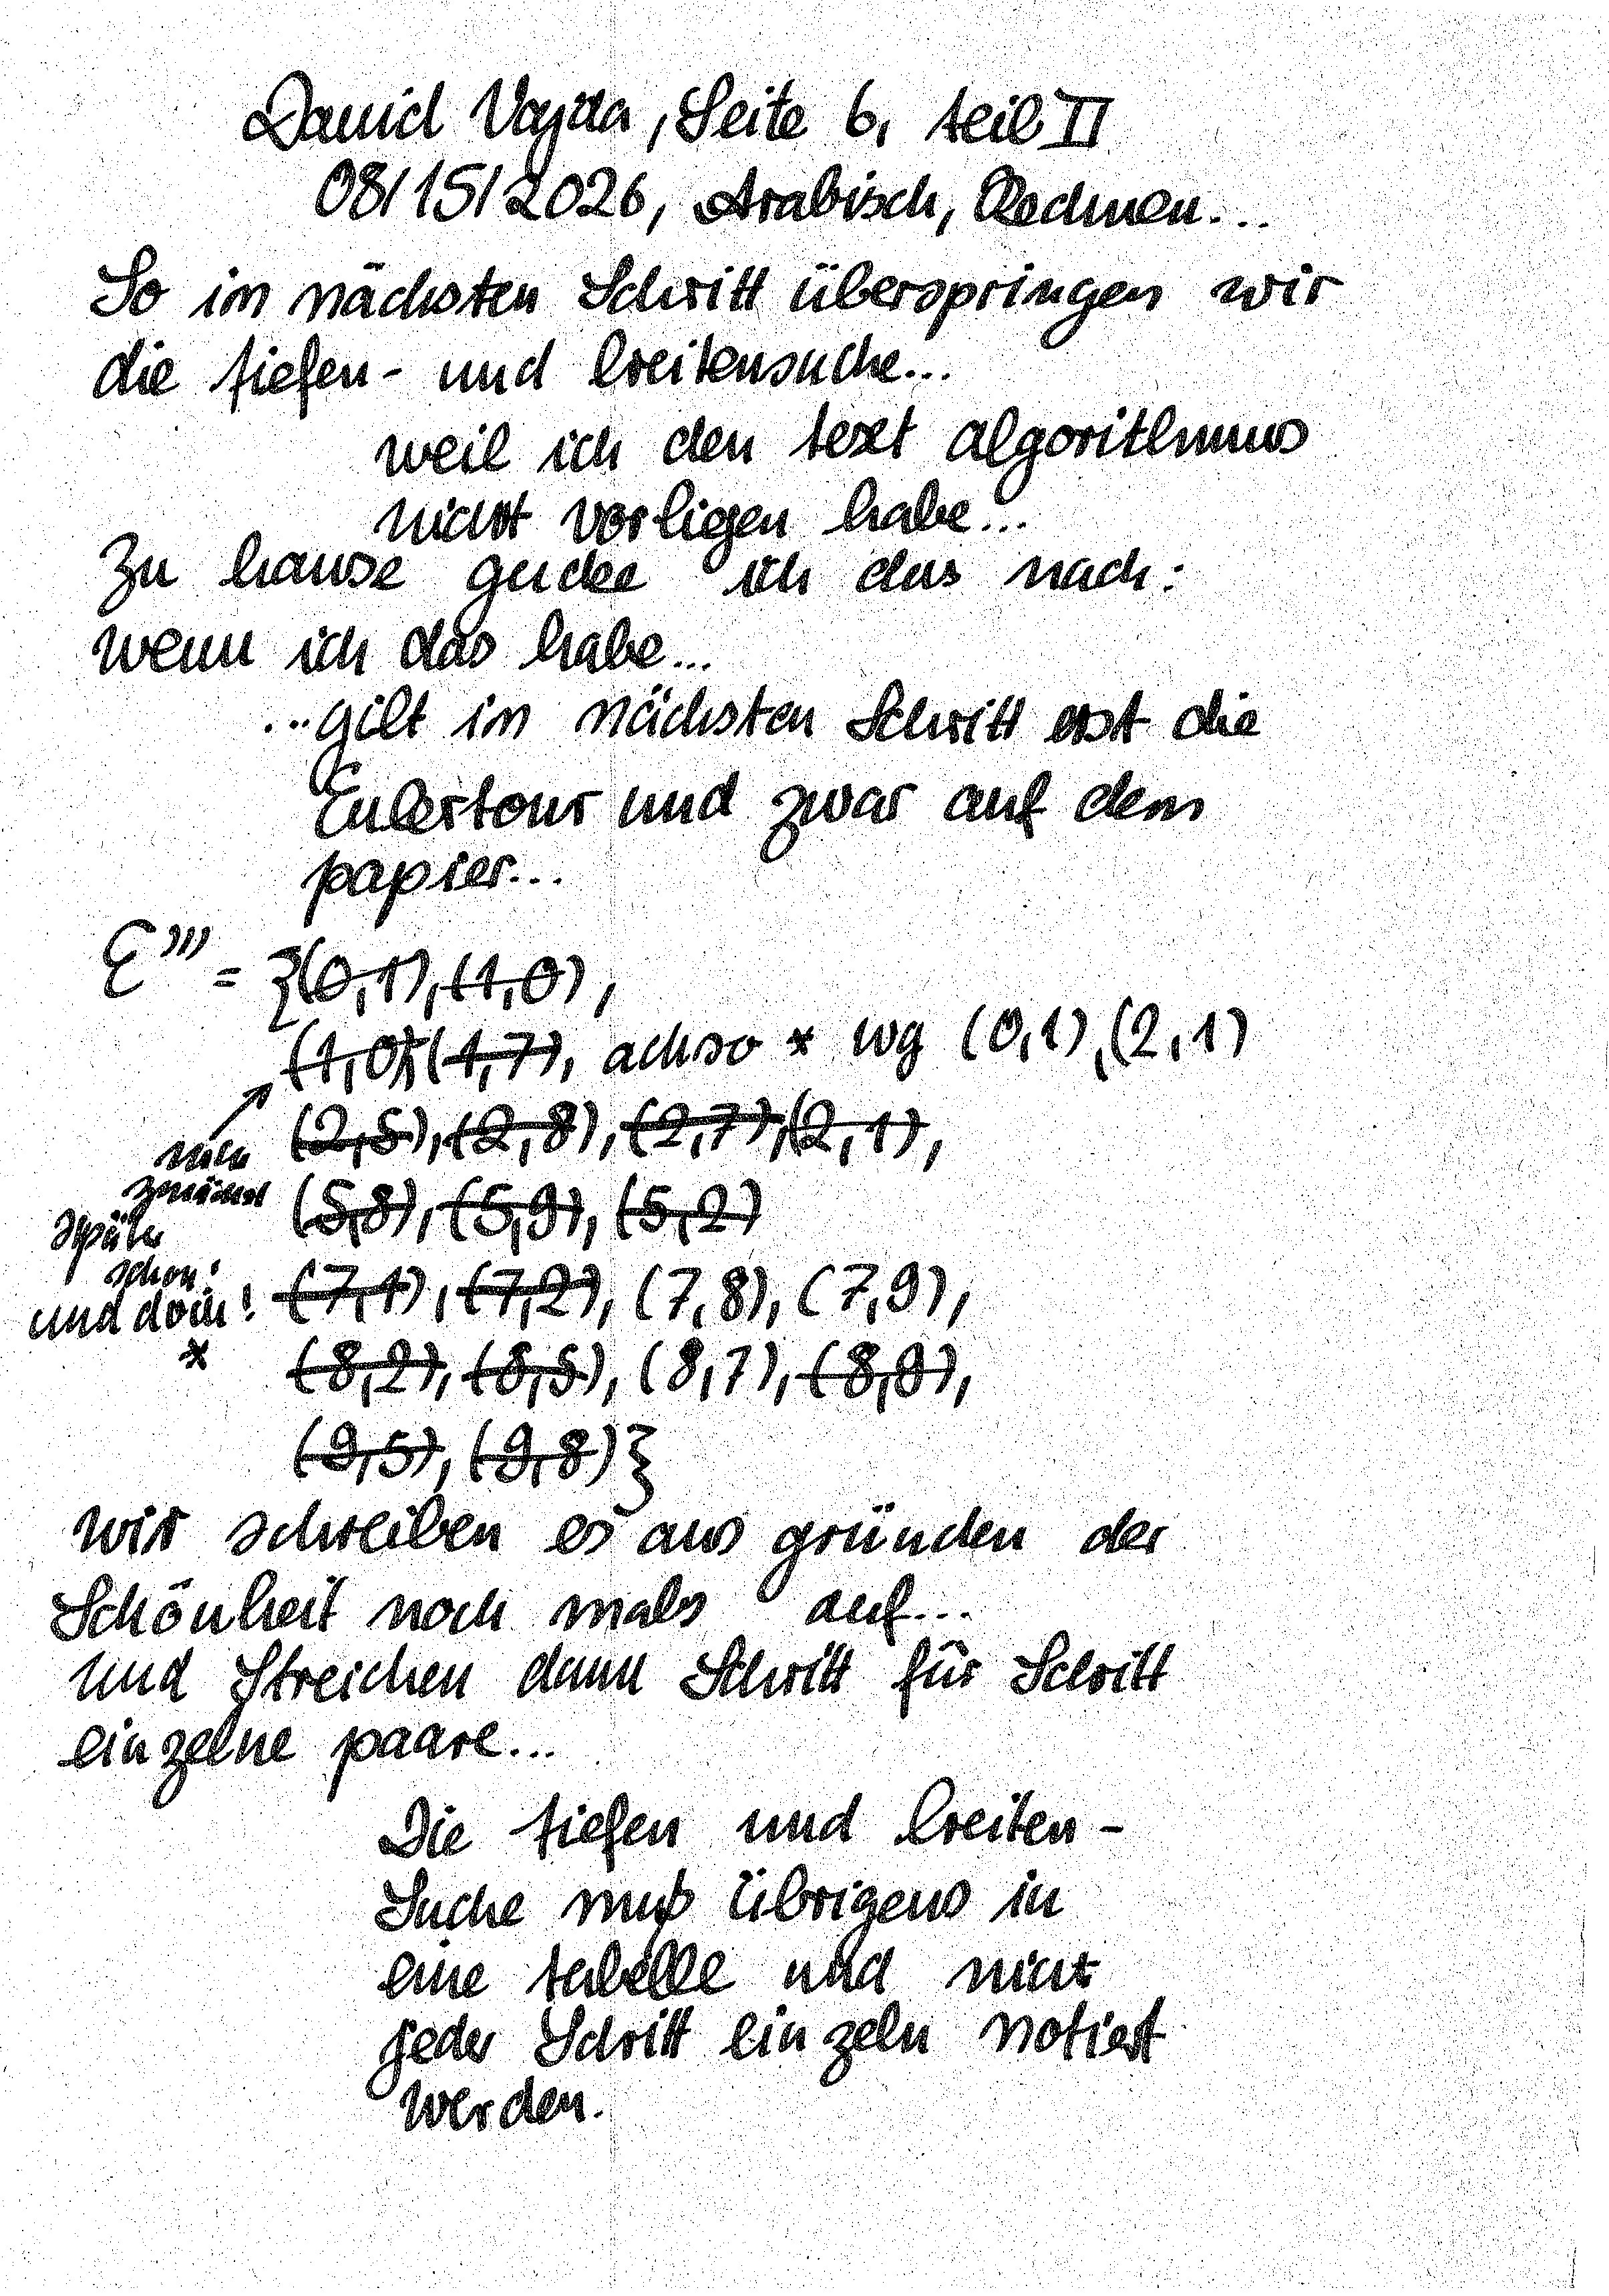 Daniel Vajda, Seite 6, teil II
08/15/2026, Arabisch, Rechnen...
So im nächsten Schritt überspringen wir
die tiefen- und breitensuche...
weil ich den text algorithmus
nicht vorligen habe...
Zu hause gucke ich das nach:
wenn ich das habe...
...gilt im nächsten Schritt erst die
Eulertour und zwar auf dem
papier...
E''' = {(0,1), (1,0),
(1,0), (1,7), achso * wg (0,1), (2,1)
(2,5), (2,8), (2,7), (2,1),
zunächst (5,8), (5,9), (5,2)
später
schon!
und doch! (7,1), (7,2), (7,8), (7,9),
* (8,2), (8,5), (8,7), (8,9),
(9,5), (9,8)}
wir schreiben es aus gründen der
Schönheit noch mals auf...
und Streichen dann Schritt für Schritt
einzelne paare...
Die tiefen und breiten-
Suche muß übrigens in
eine tabelle und nicht
jeder Schritt einzeln notiert
werden.